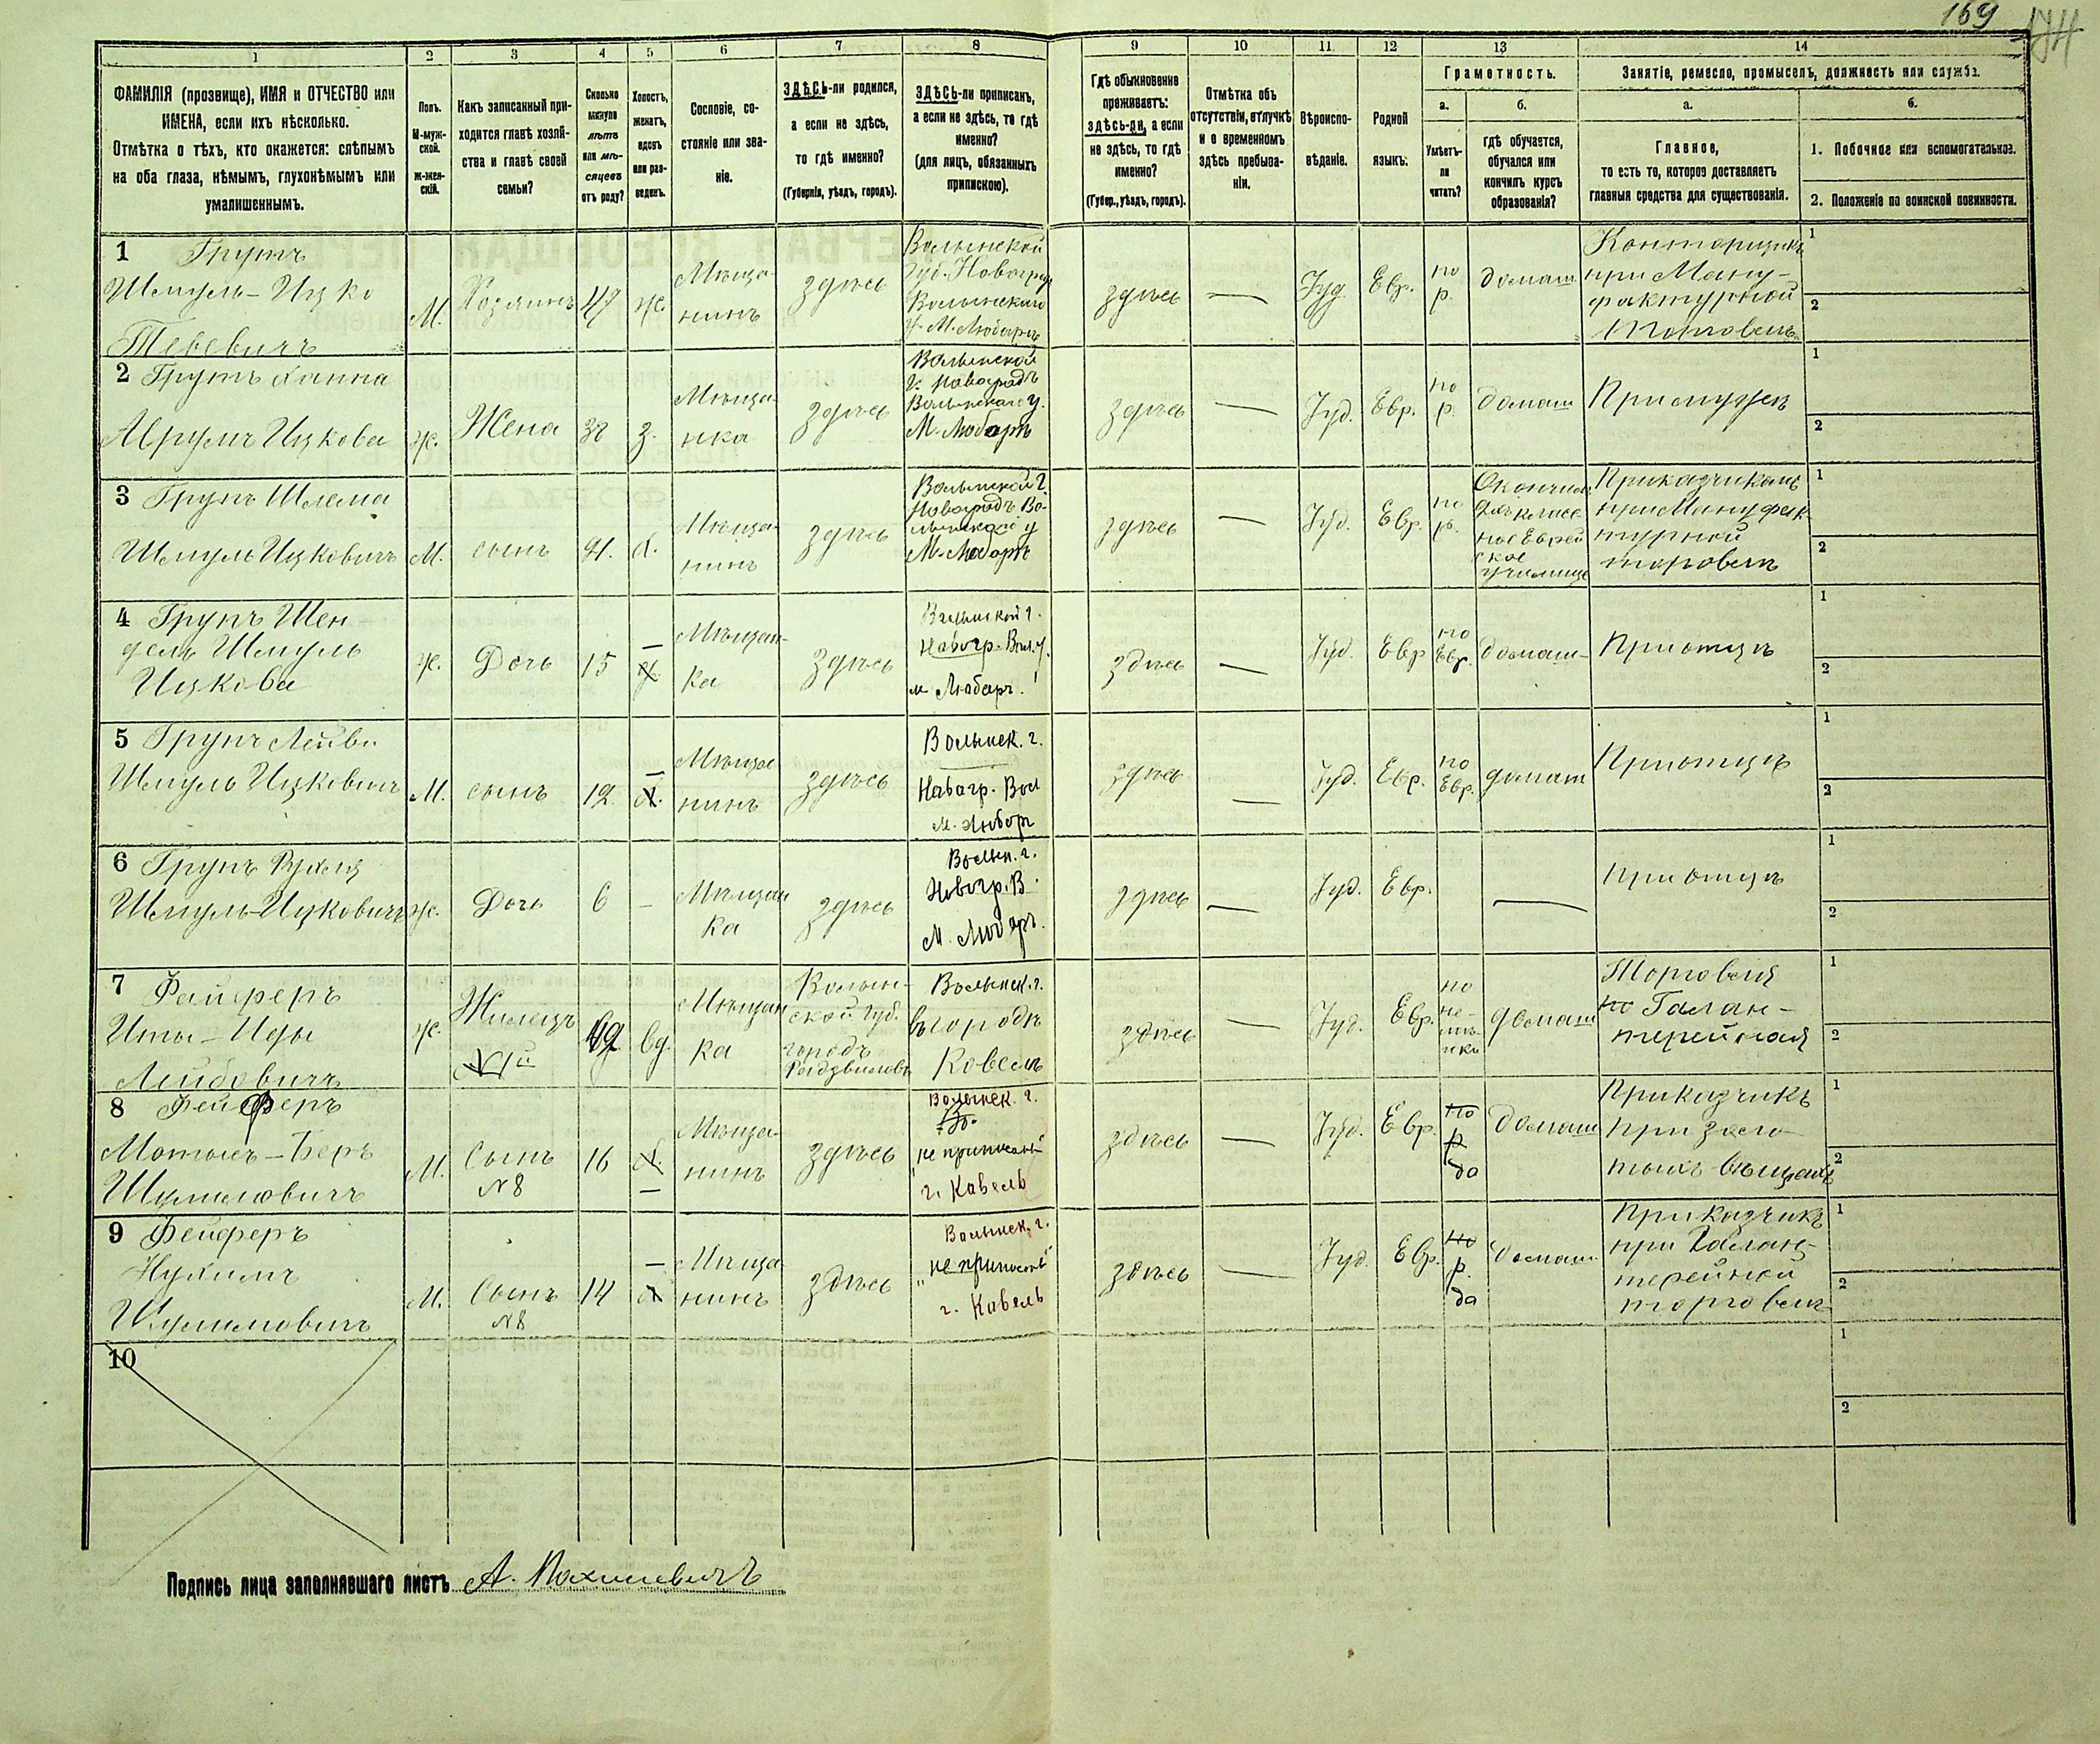 169
1
2
3
4
5
6
7
8
9
10
11
12
13
14
ФАМИЛІЯ (прозвище), ИМЯ и ОТЧЕСТВО или
ИМЕНА, если ихъ нѣсколько.
Отмѣтка о тѣхъ, кто окажется: слѣпымъ
на оба глаза, нѣмымъ, глухонѣмымъ или
умалишеннымъ.
Полъ.
М-муж-
ской.
ж-жен-
скій.
Какъ записанный при-
ходится главѣ хозяй-
ства и главѣ своей
семьи?
Сколько
минуло
лѣтъ
или мѣ-
сяцевъ
отъ роду?
Холостъ,
женатъ,
вдовъ
или раз-
веденъ.
Сословіе, со-
стояніе или зва-
ніе.
ЗДѢСЬ-ли родился,
а если не здѣсь,
то гдѣ именно?
(Губернія, уѣздъ, городъ).
ЗДѢСЬ-ли приписанъ,
а если не здѣсь, то гдѣ
именно?
(для лицъ, обязанныхъ
припискою).
Гдѣ обыкновенно
проживаетъ:
здѣсь-ли, а если
не здѣсь, то гдѣ
именно?
(Губер., уѣздъ, городъ).
Отмѣтка объ
отсутствіи, отлучкѣ
и о временномъ
здѣсь пребыва-
ніи.
Вѣроиспо-
вѣданіе.
Родной
языкъ.
Грамотность.
а.
Умѣетъ-
ли
читать?
б.
гдѣ обучается,
обучался или
кончилъ курсъ
образованія?
Занятіе, ремесло, промыселъ, должность или служба.
а.
Главное,
то есть то, которое доставляетъ
главныя средства для существованія.
б.
1. Побочное или вспомогательное.
2. Положеніе по воинской повинности.
1 Групъ
Шмуль-Ицко
Тевевичъ
М.
Хозяинъ
47
ж.
Мѣща-
нинъ
здѣсь
Волынской
Губ. Новоград
Волынскаго
у. М. Любаръ
здѣсь
—
Іуд.
Евр.
по
р.
домаш
Конторщикъ
при Ману-
фактурной
торговель
1
2
2 Групъ Ханна
Аврумъ Ицкова
ж.
Жена
38
з.
Мѣща-
нка
здѣсь
Волынской
г. Новоградъ
Волынскаго у.
М. Любаръ
здѣсь
—
Іуд.
Евр.
по
р.
домаш
При мужѣ
1
2
3 Групъ Шлема
Шмуль Ицковичъ
М.
сынъ
21.
х.
Мѣща-
нинъ
здѣсь
Волынской г.
Новоградъ Во-
лынской у
М. Любаръ
здѣсь
—
Іуд.
Евр.
по
р.
Окончил
2хъ класс
ное Еврей
ское
училище
Приказчикомъ
при Мануфак
турной
торговелъ
1
2
4 Групъ Шен-
дель Шмуль
Ицкова
ж.
Дочь
15
—
Мѣщан-
ка
здѣсь
Волынской г.
Новогр. Вол. у.
м. Любаръ.
здѣсь
—
Іуд.
Евр
по
Евр.
домаш-
При отцѣ
1
2
5 Групъ Лейви
Шмуль Ицковичъ
М.
сынъ
12
—
х.
Мѣща
нинъ
здѣсь
Волынск. г.
Новогр. Вол
м. Любар
здѣсь
—
Іуд.
Евр.
по
Евр.
домаш
При отцѣ
1
2
6 Групъ Рухля
Шмуль-Ицковичъ
ж.
Дочь
6
—
Мѣщан
ка
здѣсь
Волын. г.
Новогр. В.
м. Любаръ.
здѣсь
—
Іуд.
Евр.
—
При отцѣ
1
2
7 Фейферъ
Иты-Иды
Лейбовичъ
ж.
Жилецъ
вд.
Мѣщан
ка
Волын-
ской Губ.
городъ
Радзвиловъ
Волынск. г.
въ городѣ
Ковель
здѣсь
—
Іуд.
Евр.
по
не-
мѣ-
цки
домаш
Торговля
по Галан-
терейная
1
2
8 Фейферъ
Мотель-Беръ
Шулимовичъ
М.
Сынъ
№ 8
16
х.
—
Мѣща-
нинъ
здѣсь
Волынск. г.
не приписанъ
г. Ковель
здѣсь
—
Іуд.
Евр.
по
р
да
домаш
Приказчикъ
при золо-
тыхъ вѣщахъ
1
2
9 Фейферъ
Нухимъ
Шулимовичъ
М.
Сынъ
№ 8
14
—
х
Мѣща-
нинъ
здѣсь
Волынск. г.
"не приписанъ"
г. Ковель
здѣсь
—
Іуд.
Евр.
по
р.
да
домаш.
Приказчикъ
при Галан-
терейной
торговли
1
2
10
1
2
Подпись лица заполнявшаго листъ